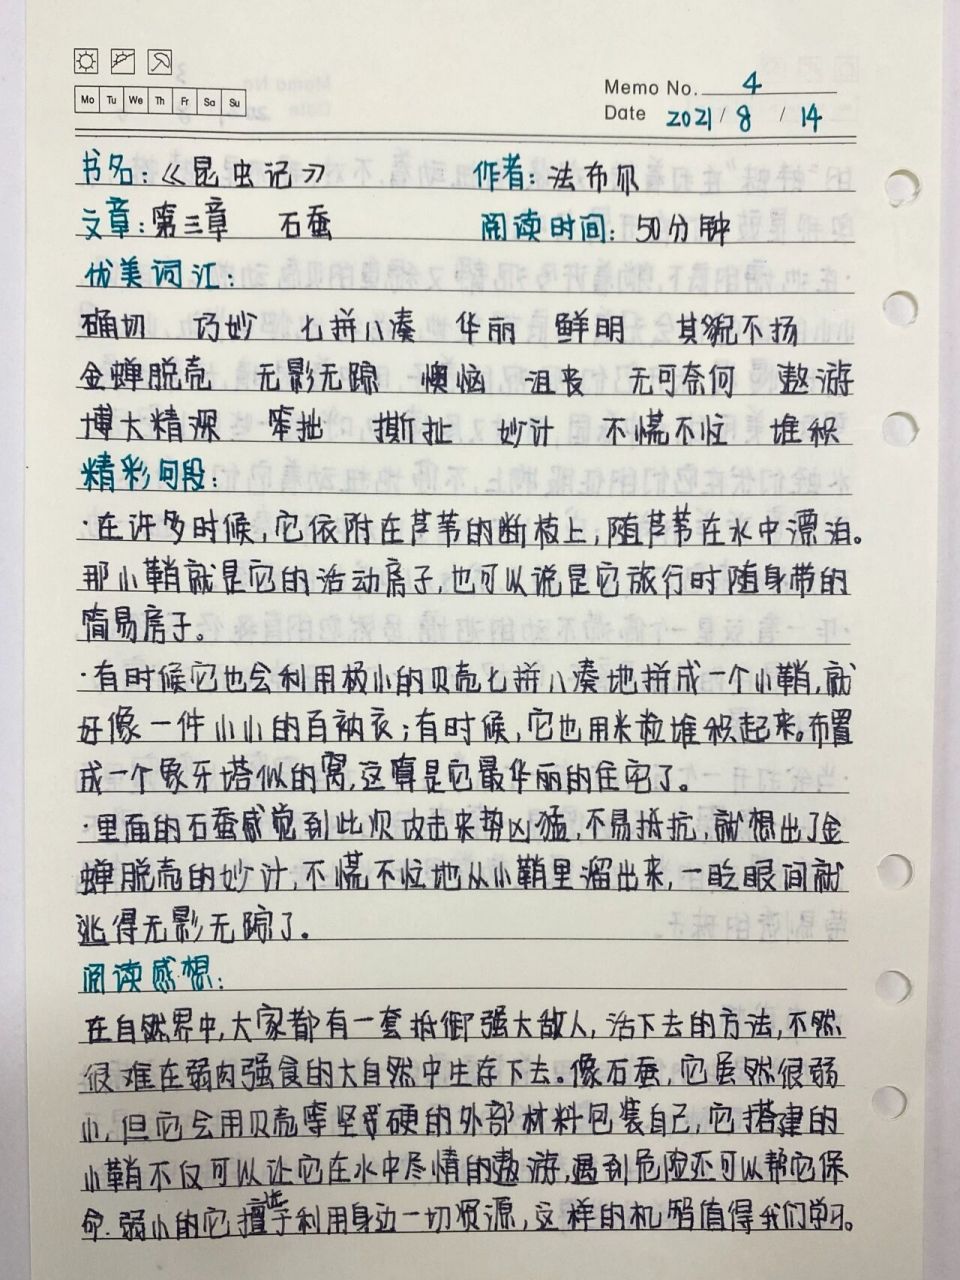 Mo Tu We Th Fr Sa Su
Memo No. 4
Date 2021 / 8 / 14
书名:《昆虫记》 作者:法布尔
文章:第三章 石蚕 阅读时间:50分钟
优美词汇:
确切 巧妙 七拼八凑 华丽 鲜明 其貌不扬
金蝉脱壳 无影无踪 懊恼 沮丧 无可奈何 遨游
博大精深 笨拙 撕扯 妙计 不慌不忙 堆积
精彩句段:
·在许多时候,它依附在芦苇的断枝上,随芦苇在水中漂泊。
那小鞘就是它的活动房子,也可以说是它旅行时随身带的
简易房子。
·有时候它也会利用极小的贝壳七拼八凑地拼成一个小鞘,就
好像一件小小的百衲衣;有时候,它也用米粒堆积起来。布置
成一个象牙塔似的窝,这算是它最华丽的住宅了。
·里面的石蚕感觉到此次攻击来势凶猛,不易抵抗,就想出了金
蝉脱壳的妙计,不慌不忙地从小鞘里溜出来,一眨眼间就
逃得无影无踪了。
阅读感想:
在自然界中,大家都有一套抵御强大敌人,活下去的方法,不然
很难在弱肉强食的大自然中生存下去。像石蚕,它虽然很弱
小,但它会用贝壳等坚硬的外部材料包装自己,它搭建的
小鞘不仅可以让它在水中尽情的遨游,遇到危险还可以帮它保
命.弱小的它擅于利用身边一切资源,这样的机智值得我们学习。